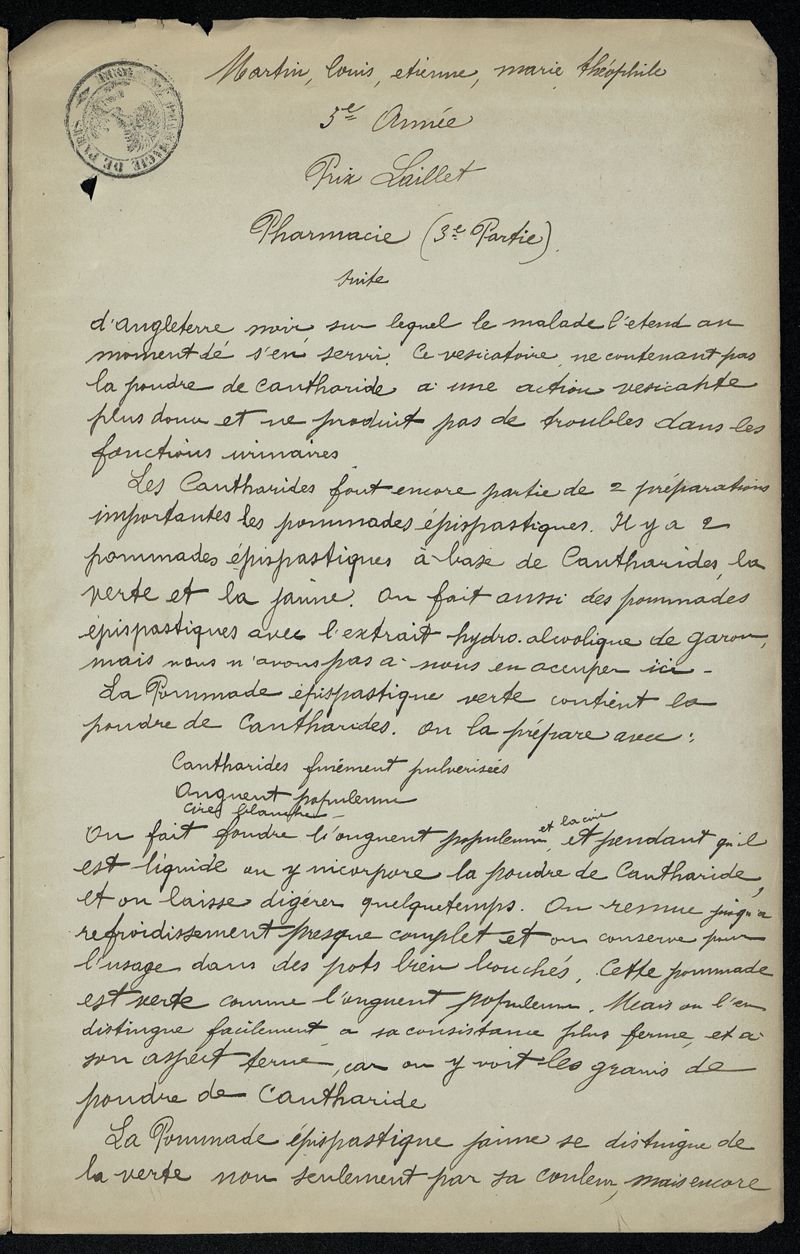 Martin, louis, etienne, marie, théophile
5e Année
Prix Laillet
Pharmacie (3e Partie)
suite
d'angleterre noir, sur lequel le malade l'etend au
moment de s'en servir. Ce vesicatoire ne contenant pas
la poudre de cantharide a une action vesicante
plus douce et ne produit pas de troubles dans les
fonctions urinaires
Les Cantharides font encore partie de 2 préparations
importantes les pommades épispastiques. Il y a 2
pommades épispastiques à base de Cantharides, la
verte et la jaune. On fait aussi des pommades
epispastiques avec l'extrait hydro-alcoolique de garou,
mais nous n'avons pas a nous en occuper ici -
La Pommade épispastique verte contient la
poudre de Cantharides. On la prépare avec :
Cantharides finément pulverisées
Onguent populeum
Cire blanche -
On fait fondre l'onguent populeum et la cire, et pendant qu'il
est liquide on y incorpore la poudre de Cantharide,
et on laisse digérer quelque temps. On remue jusqu'a
refroidissement presque complet et on conserve pour
l'usage dans des pots bien bouchés. Cette pommade
est verte comme l'onguent populeum. Mais on l'en
distingue facilement a sa consistance plus ferme, et a
son aspect terne, car on y voit les grains de
poudre de Cantharide
La Pommade épispastique jaune se distingue de
la verte non seulement par sa couleur, mais encore